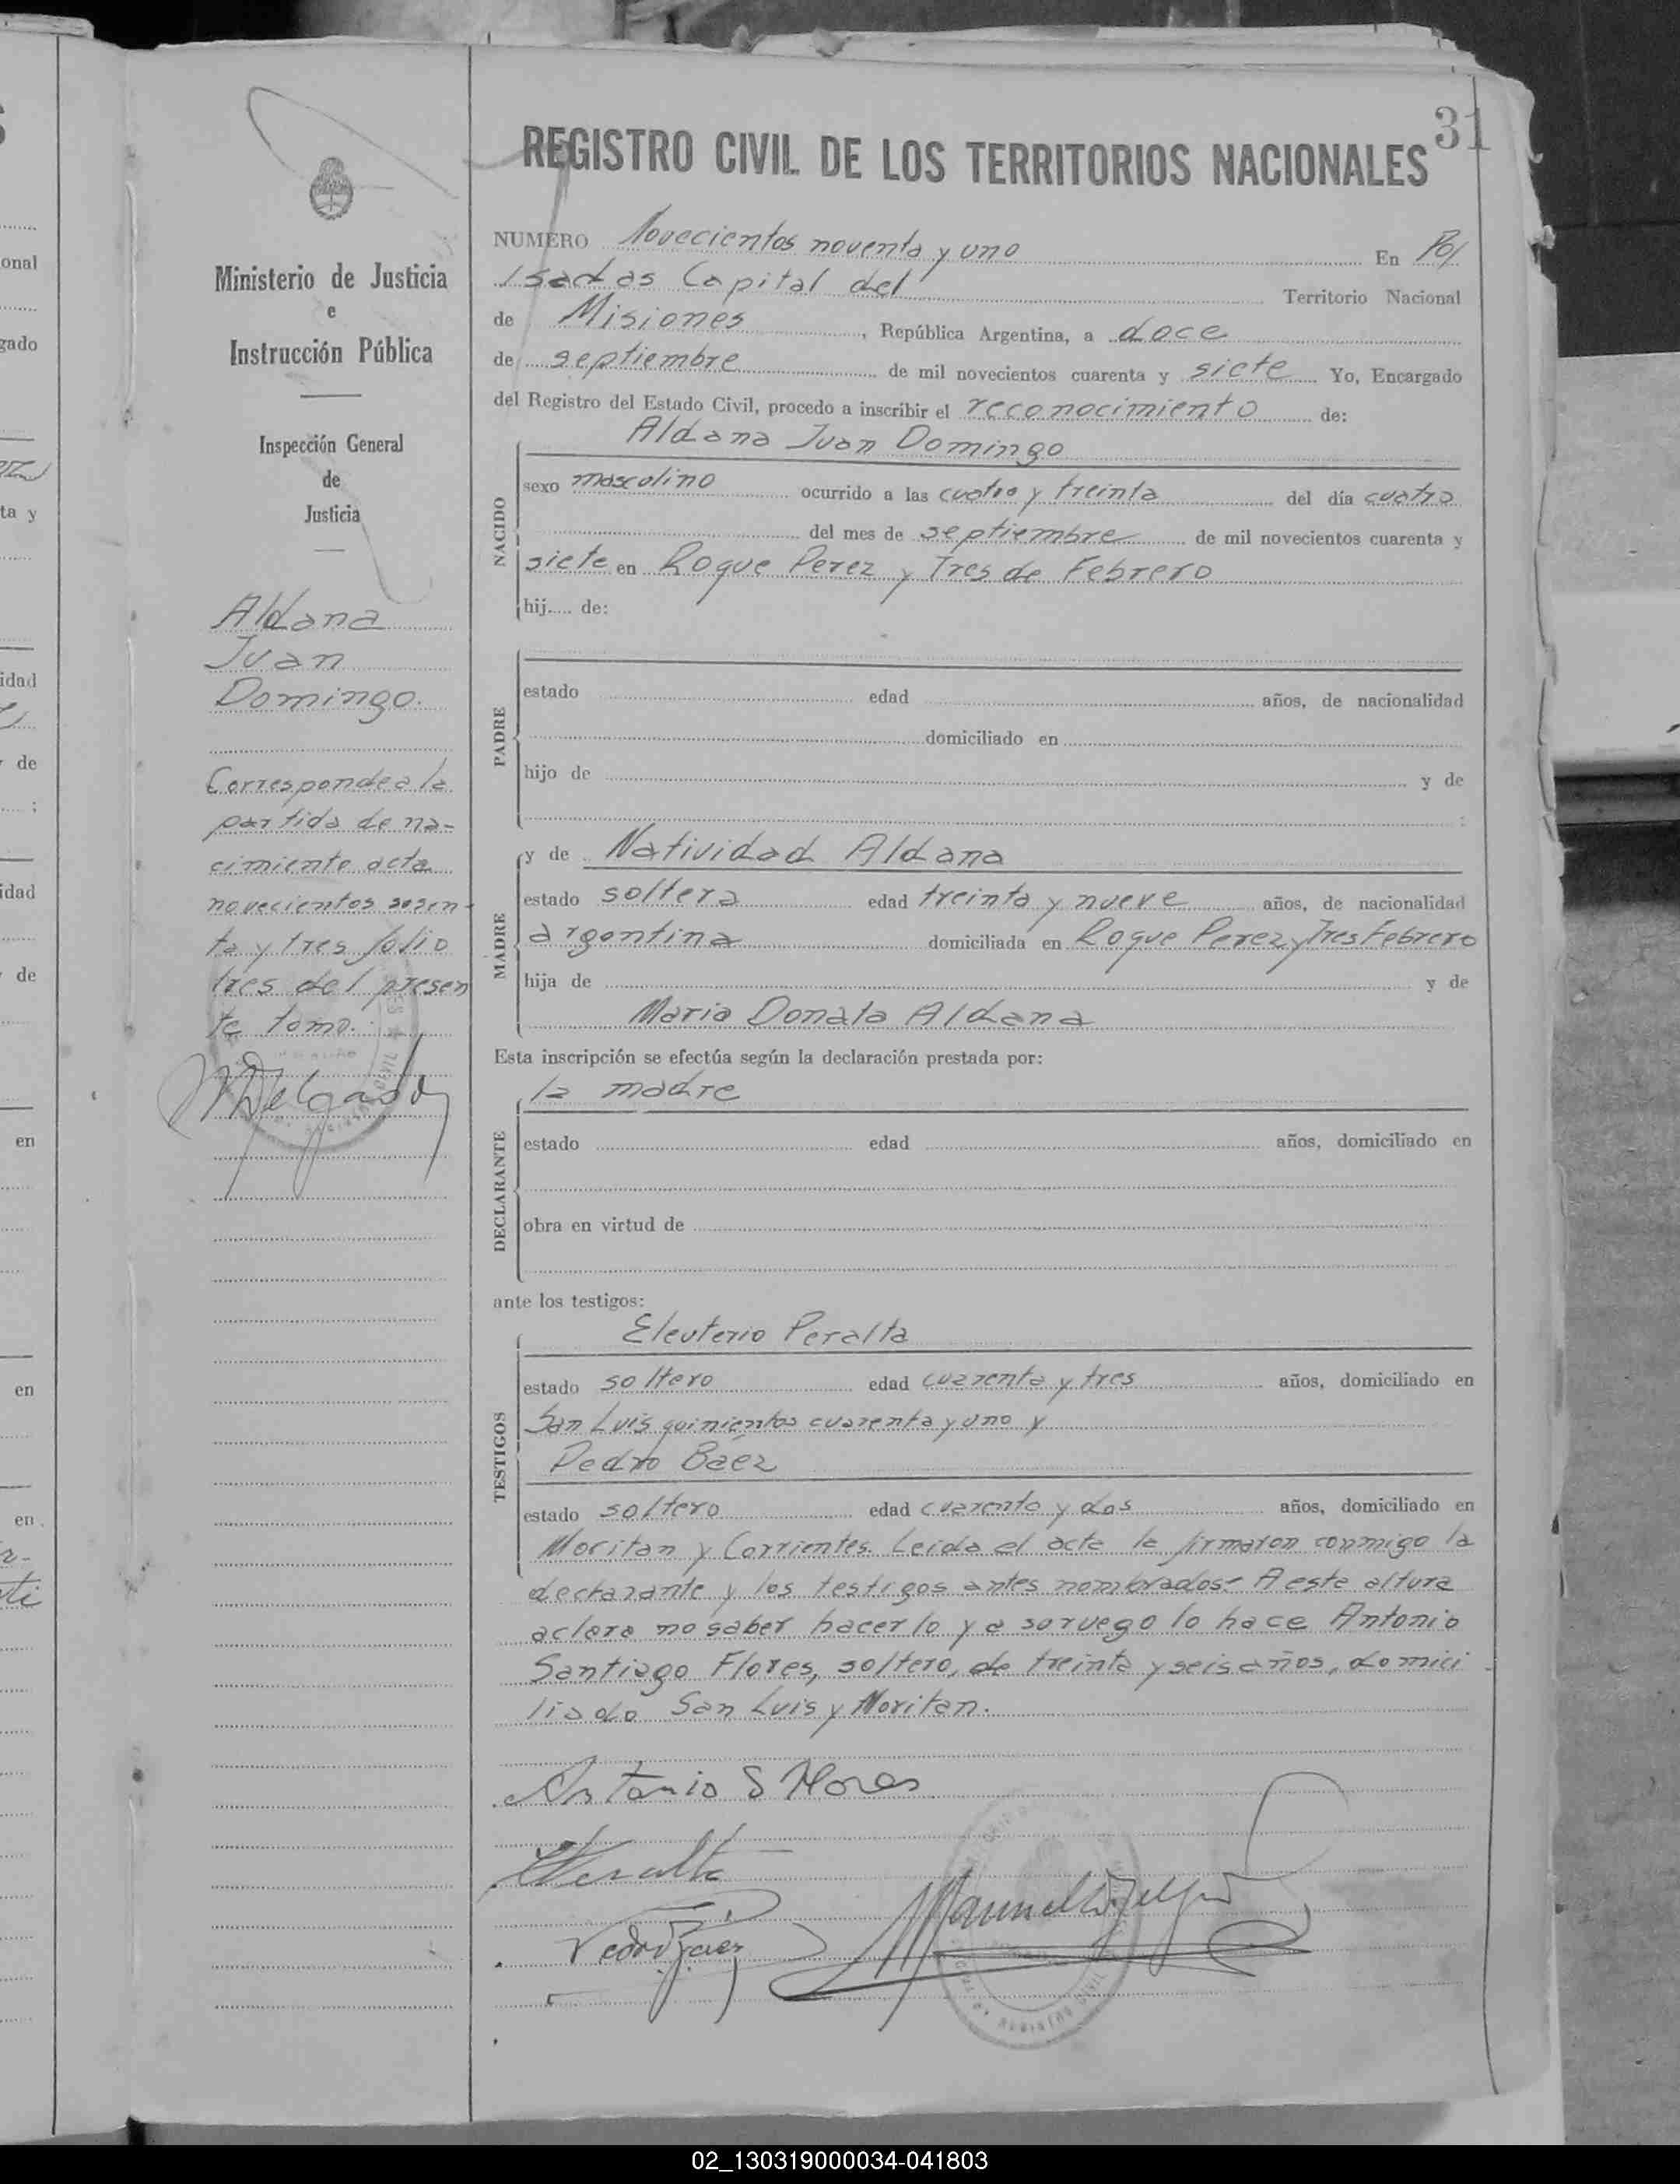 31
REGISTRO CIVIL DE LOS TERRITORIOS NACIONALES
Ministerio de Justicia
e
Instrucción Pública
Inspección General
de
Justicia
Aldana
Juan
Domingo.
Corresponde a la
partida de na-
cimiento acta
novecientos sesen-
ta y tres folio
tres del presen
te tomo.
MDelgado
NUMERO Novecientos noventa y uno En Po/
/sadas Capital del Territorio Nacional
de Misiones, República Argentina, a doce
de septiembre de mil novecientos cuarenta y siete Yo, Encargado
del Registro del Estado Civil, procedo a inscribir el reconocimiento de:
Aldana Juan Domingo
NACIDO
sexo masculino ocurrido a las cuatro y treinta del día cuatro
del mes de septiembre de mil novecientos cuarenta y
siete en Roque Perez y Tres de Febrero
hij..... de:
PADRE
estado edad años, de nacionalidad
domiciliado en
hijo de y de
:
MADRE
y de Natividad Aldana
estado soltera edad treinta y nueve años, de nacionalidad
argentina domiciliada en Roque Perez y Tres Febrero
hija de y de
Maria Donata Aldana
Esta inscripción se efectúa según la declaración prestada por:
la madre
DECLARANTE
estado edad años, domiciliado en
obra en virtud de
ante los testigos:
Eleuterio Peralta
TESTIGOS
estado soltero edad cuarenta y tres años, domiciliado en
San Luis quinientos cuarenta y uno y
Pedro Báez
estado soltero edad cuarenta y dos años, domiciliado en
Moritan y Corrientes. Leida el acta la firmaron conmigo la
declarante y los testigos antes nombrados- A esta altura
aclara no saber hacerlo y a soruego lo hace Antonio
Santiago Flores, soltero, de treinta y seis años, domici
liado San Luis y Moritan.
Antonio S Flores
EPeralta
Pedro Baez
02_130319000034-041803